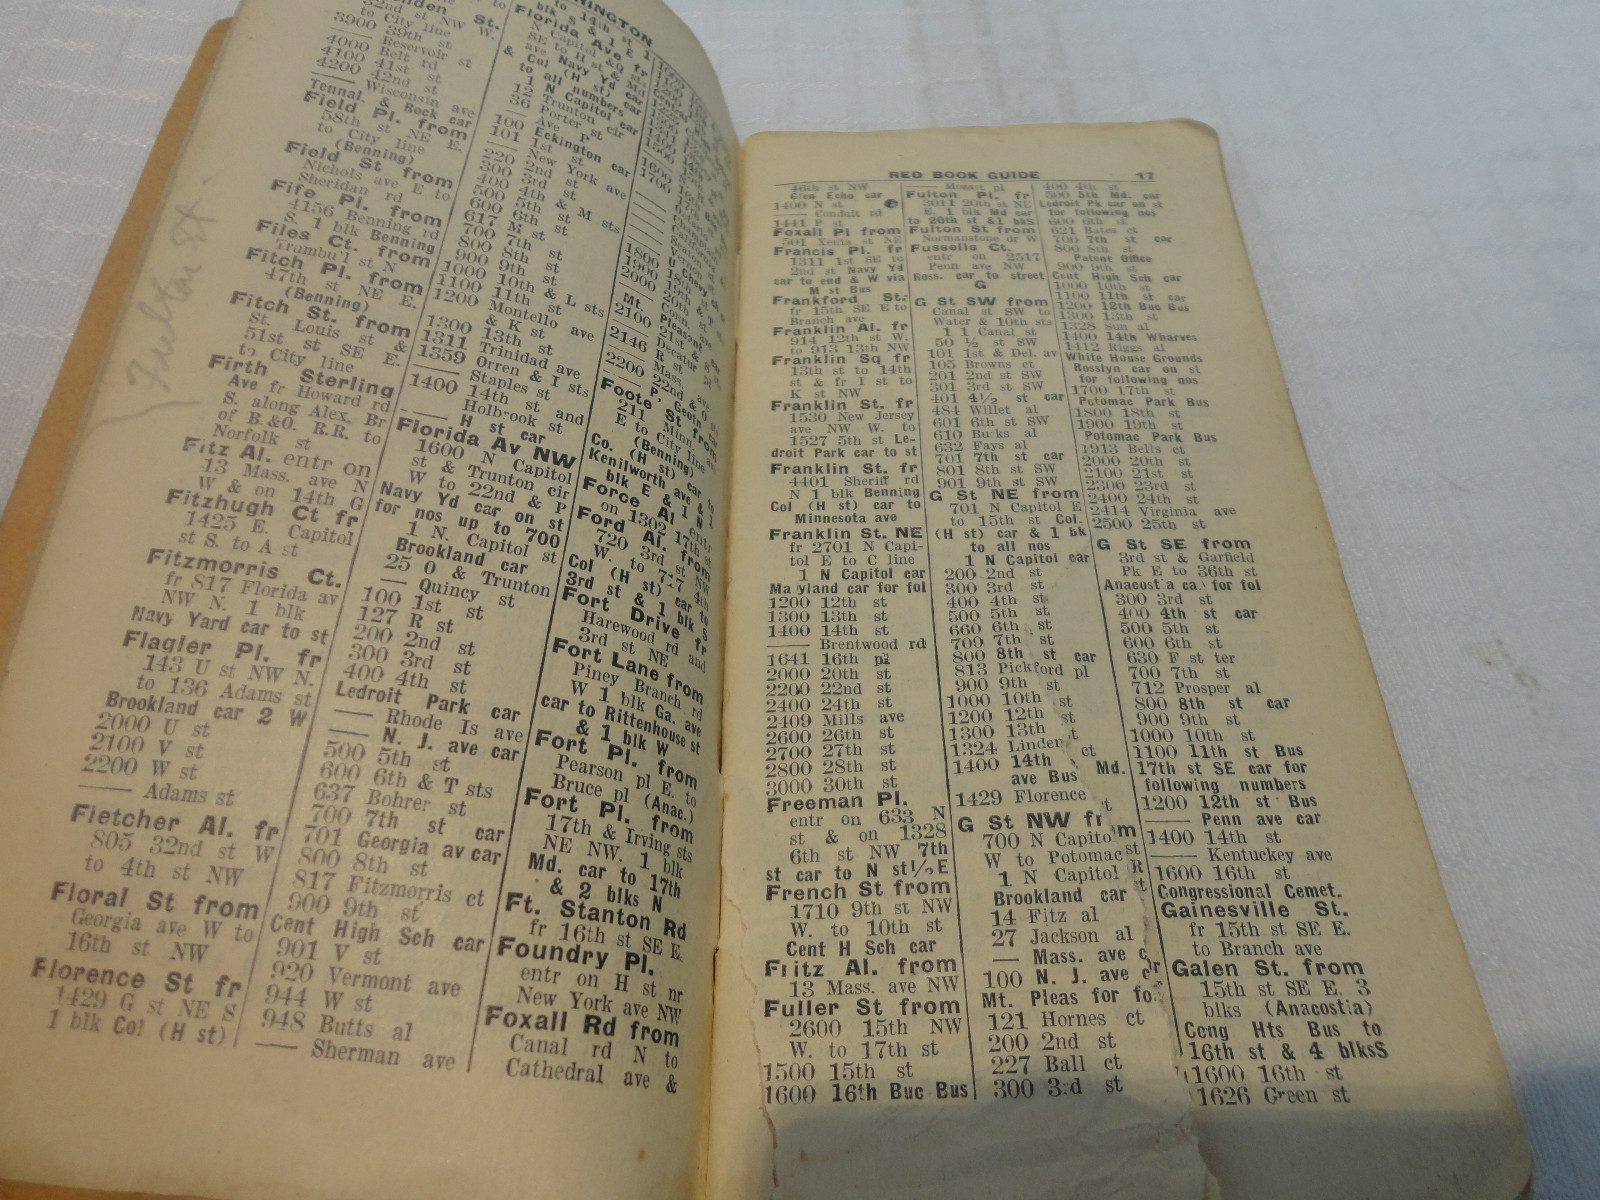 enden St.
32nd st NW W.
to City line
3900 39th st
Reservoir st
4000 Belt rd
4100 41st st
4200 42nd st
—— Wisconsin ave
Tennal. & Rock car
Field Pl. from
58th st NE E.
to City line
(Benning)
Field St from
Nichols ave E to
Sheridan rd
Fife Pl. from
4156 Benning rd
S. 1 blk Benning
Files Ct. from
Trumbu'l st N
Fitch Pl. from
47th st NE E.
(Benning)
Fitch St. from
St. Louis st &
51st st SE E.
to City line
Firth Sterling
Ave fr Howard rd
S. along Alex. Br
of B.&O. R.R. to
Norfolk st
Fitz Al. entr on
13 Mass. ave N
W & on 14th G
Fitzhugh Ct fr
1425 E. Capitol
st S. to A st
Fitzmorris Ct.
fr 817 Florida av
NW N. 1 blk
Navy Yard car to st
Flagler Pl. fr
143 U st NW N.
to 136 Adams st
Brookland car 2 W
2000 U st
2100 V st
2200 W st
—— Adams st
Fletcher Al. fr
805 32nd st W
to 4th st NW
Floral St from
Georgia ave W to
16th st NW
Florence St fr
1429 G st NE S
1 blk Col (H st)
INGTON
to 14th st
blk S & 1 E
Florida Ave fr
N Capitol & Q st.
SE to H st & Md
ave Navy Yd car
& Col (H st) car
to all numbers
1 N Capitol car
12 Trunton cir
36 Porter st
Ave P
100 Eckington car
101 1st st
—— New York ave
220 2nd st
300 3rd st
400 4th & M sts
500 5th st
600 6th st
617 M st
700 7th st
800 8th st
900 9th st
1000 10th & L sts
1100 11th st
1200 Montello ave
& K st
1300 13th st
1311 Trinidad ave
1359 Orren & I sts
—— Staples st
1400 14th st and
Holbrook st
—— H st car
Florida Av NW
1600 N Capitol
st & Trunton cir
W to 22nd & P
Navy Yd car on st
for nos up to 700
1 N. Capitol st
Brookland car
25 O & Trunton
—— Quincy st
100 1st st
127 R st
200 2nd st
300 3rd st
400 4th st
Ledroit Park car
—— Rhode Is ave
—— N. J. ave car
500 5th st
600 6th & T sts
637 Bohrer st
700 7th st car
701 Georgia av car
800 8th st
817 Fitzmorris ct
900 9th st
Cent High Sch car
901 V st
920 Vermont ave
944 W st
948 Butts al
—— Sherman ave
1600
1700
1800
1900
2000
Mt. Pleasant
2100 21st &
Decatur
2146 R
—— Mass.
2200 22nd &
—— P, Geotn
Foote St from
211 Minn.
E to City line
(Benning)
Co. (H st) car
Kenilworth ave &
blk E & 1 N
Force Al. entr
on 1302 17th st
Ford Al. from
720 3rd st NW
W. to 727 4th
Col (H st) car to
3rd st & 1 blk S
Fort Drive fr
Harewood rd and
3rd st NE
Fort Lane from
Piney Branch rd
W 1 blk Ga. ave
car to Rittenhouse st
& 1 blk W
Fort Pl. from
Pearson pl E. to
Bruce pl (Anac.)
Fort Pl. from
17th & Irving sts
NE NW. 1 blk
Md. car to 17th
& 2 blks N
Ft. Stanton Rd
fr 16th st SE E.
Foundry Pl.
entr on H st nr
New York ave NW
Foxall Rd from
Canal rd N to
Cathedral ave &
RED BOOK GUIDE 17
46th st NW
Glen Echo car
1400 N st
—— Conduit rd
1441 P st
Foxall Pl from
501 Xenia st NE
Francis Pl. fr
1311 1st SE to
2nd st Navy Yd
car to end & W via
M st Bus
Frankford St.
fr 15th SE E to
Branch ave
Franklin Al. fr
914 12th st W.
to 913 13th NW
Franklin Sq fr
13th st to 14th
st & fr I st to
K st NW
Franklin St. fr
1530 New Jersey
ave NW W. to
1527 5th st Le-
droit Park car to st
Franklin St. fr
4401 Sheriff rd
N 1 blk Benning
Col (H st) car to
Minnesota ave
Franklin St. NE
fr 2701 N Capi-
tol E to C line
1 N Capitol car
Maryland car for fol
1200 12th st
1300 13th st
1400 14th st
—— Brentwood rd
1641 16th pl
2000 20th st
2200 22nd st
2400 24th st
2409 Mills ave
2600 26th st
2700 27th st
2800 28th st
3000 30th st
Freeman Pl.
entr on 633 N
st & on 1328
6th st NW 7th
st car to N st½E
French St from
1710 9th st NW
W. to 10th st
Cent H Sch car
Fritz Al. from
13 Mass. ave NW
Fuller St from
2600 15th NW
W. to 17th st
1500 15th st
1600 16th Buc Bus
Mozart pl
Fulton Pl. fr
3011 20th st NE
E. 1 blk Md car
to 20th st &1 blkS
Fulton St from
Normanstone dr W
Fussells Ct.
entr on 2517
Penn ave NW
Ross. car to street
G
G St SW from
Canal st SW to
Water & 10th sts
1 1 Canal st
50 ½ st SW
101 1st & Del. av
105 Browns ct
201 2nd st SW
301 3rd st SW
401 4½ st car
484 Willet al
601 6th st SW
610 Burks al
632 Fays al
701 7th st car
801 8th st SW
901 9th st SW
G St NE from
701 N Capitol E
to 15th st Col.
(H st) car & 1 bk
to all nos
1 N Capitol car
200 2nd st
300 3rd st
400 4th st
500 5th st
660 6th st
700 7th st
800 8th st car
813 Pickford pl
900 9th st
1000 10th st
1200 12th st
1300 13th st
1324 Linden ct
1400 14th Md.
ave Bus
1429 Florence st
G St NW from
700 N Capitol st
W to Potomac R
1 N Capitol st
Brookland car
14 Fitz al
27 Jackson al
— Mass. ave
100 N. J. ave cr
Mt. Pleas for fo
121 Hornes ct
200 2nd st
227 Ball ct
300 3rd st
400 4th st
500 5th Md. car
Ledroit Pk car on st
for following nos
600 6th st
621 Bates ct
700 7th st car
800 8th st
Patent Office
900 9th st
Cent High Sch car
1000 10th st
1100 11th st car
1200 12th Buc Bus
1300 13th st
1328 Sun al
1400 14th Wharves
1412 Riggs al
White House Grounds
Rosslyn car on st
for following nos
1700 17th st
Potomac Park Bus
1800 18th st
1900 19th st
Potomac Park Bus
1913 Bells ct
2000 20th st
2100 21st st
2300 23rd st
2400 24th st
2414 Virginia ave
2500 25th st
G St SE from
3rd st & Garfield
Pk E to 36th st
Anacostia car for fol
300 3rd st
400 4th st car
500 5th st
600 6th st
630 F st ter
700 7th st
712 Prosper al
800 8th st car
900 9th st
1000 10th st
1100 11th st Bus
17th st SE car for
following numbers
1200 12th st Bus
—— Penn ave car
1400 14th st
—— Kentuckey ave
1600 16th st
Congressional Cemet.
Gainesville St.
fr 15th st SE E.
to Branch ave
Galen St. from
15th st SE E. 3
blks (Anacostia)
Cong Hts Bus to
16th st & 4 blksS
1600 16th st
1626 Green st